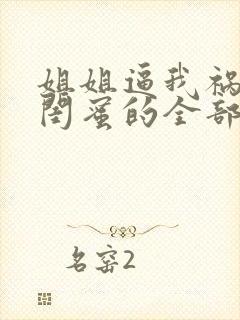 姐姐逼我祸
闺蜜的全部
名窑2